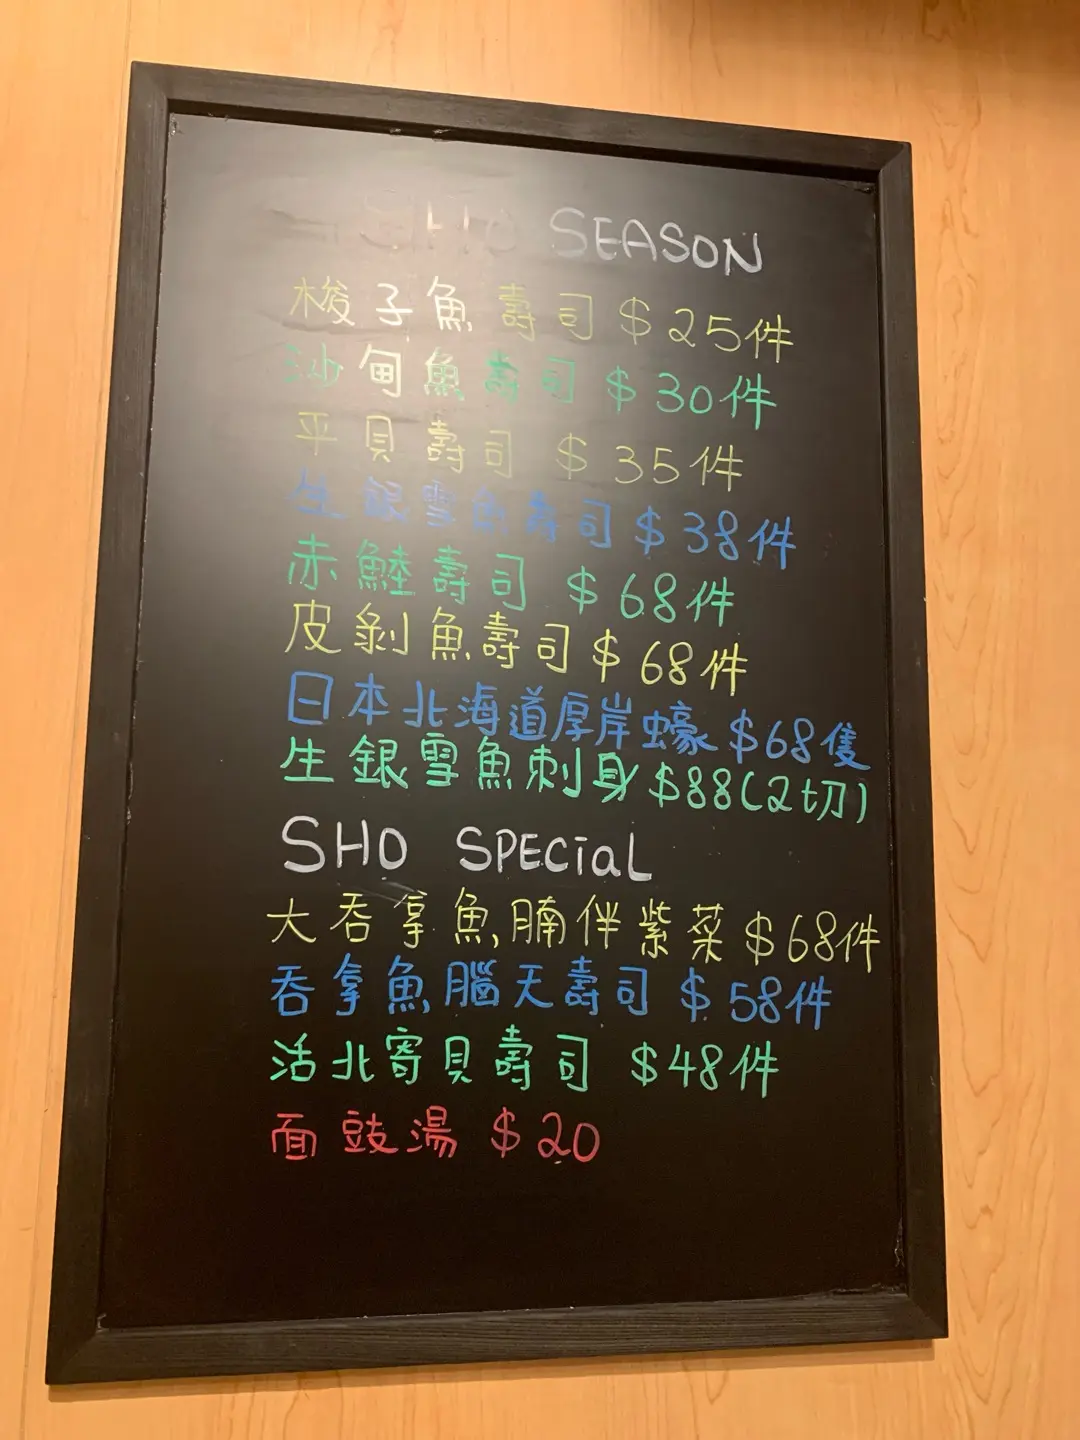 SHO SEASON
梭子魚壽司 $25件
沙甸魚壽司 $30件
平貝壽司 $35件
生銀雪魚壽司 $38件
赤鯥壽司 $68件
皮剝魚壽司 $68件
日本北海道厚岸蠔 $68隻
生銀雪魚刺身 $88(2切)
SHO SPECiaL
大吞拿魚腩伴紫菜 $68件
吞拿魚腦天壽司 $58件
活北寄貝壽司 $48件
面豉湯 $20